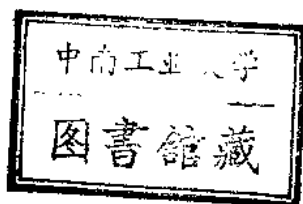 中南工业 学
图書館藏